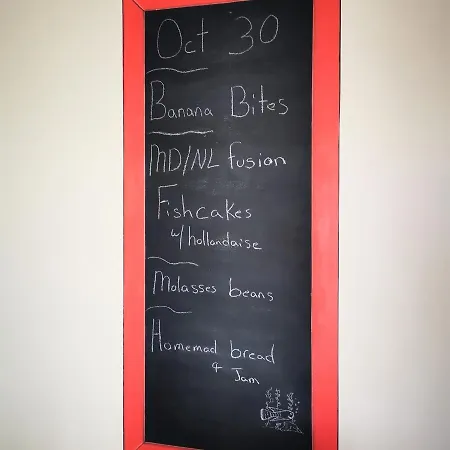 Oct 30
Banana Bites
MD/NL fusion
Fishcakes
w/hollandaise
Molasses beans
Homemad bread
& Jam